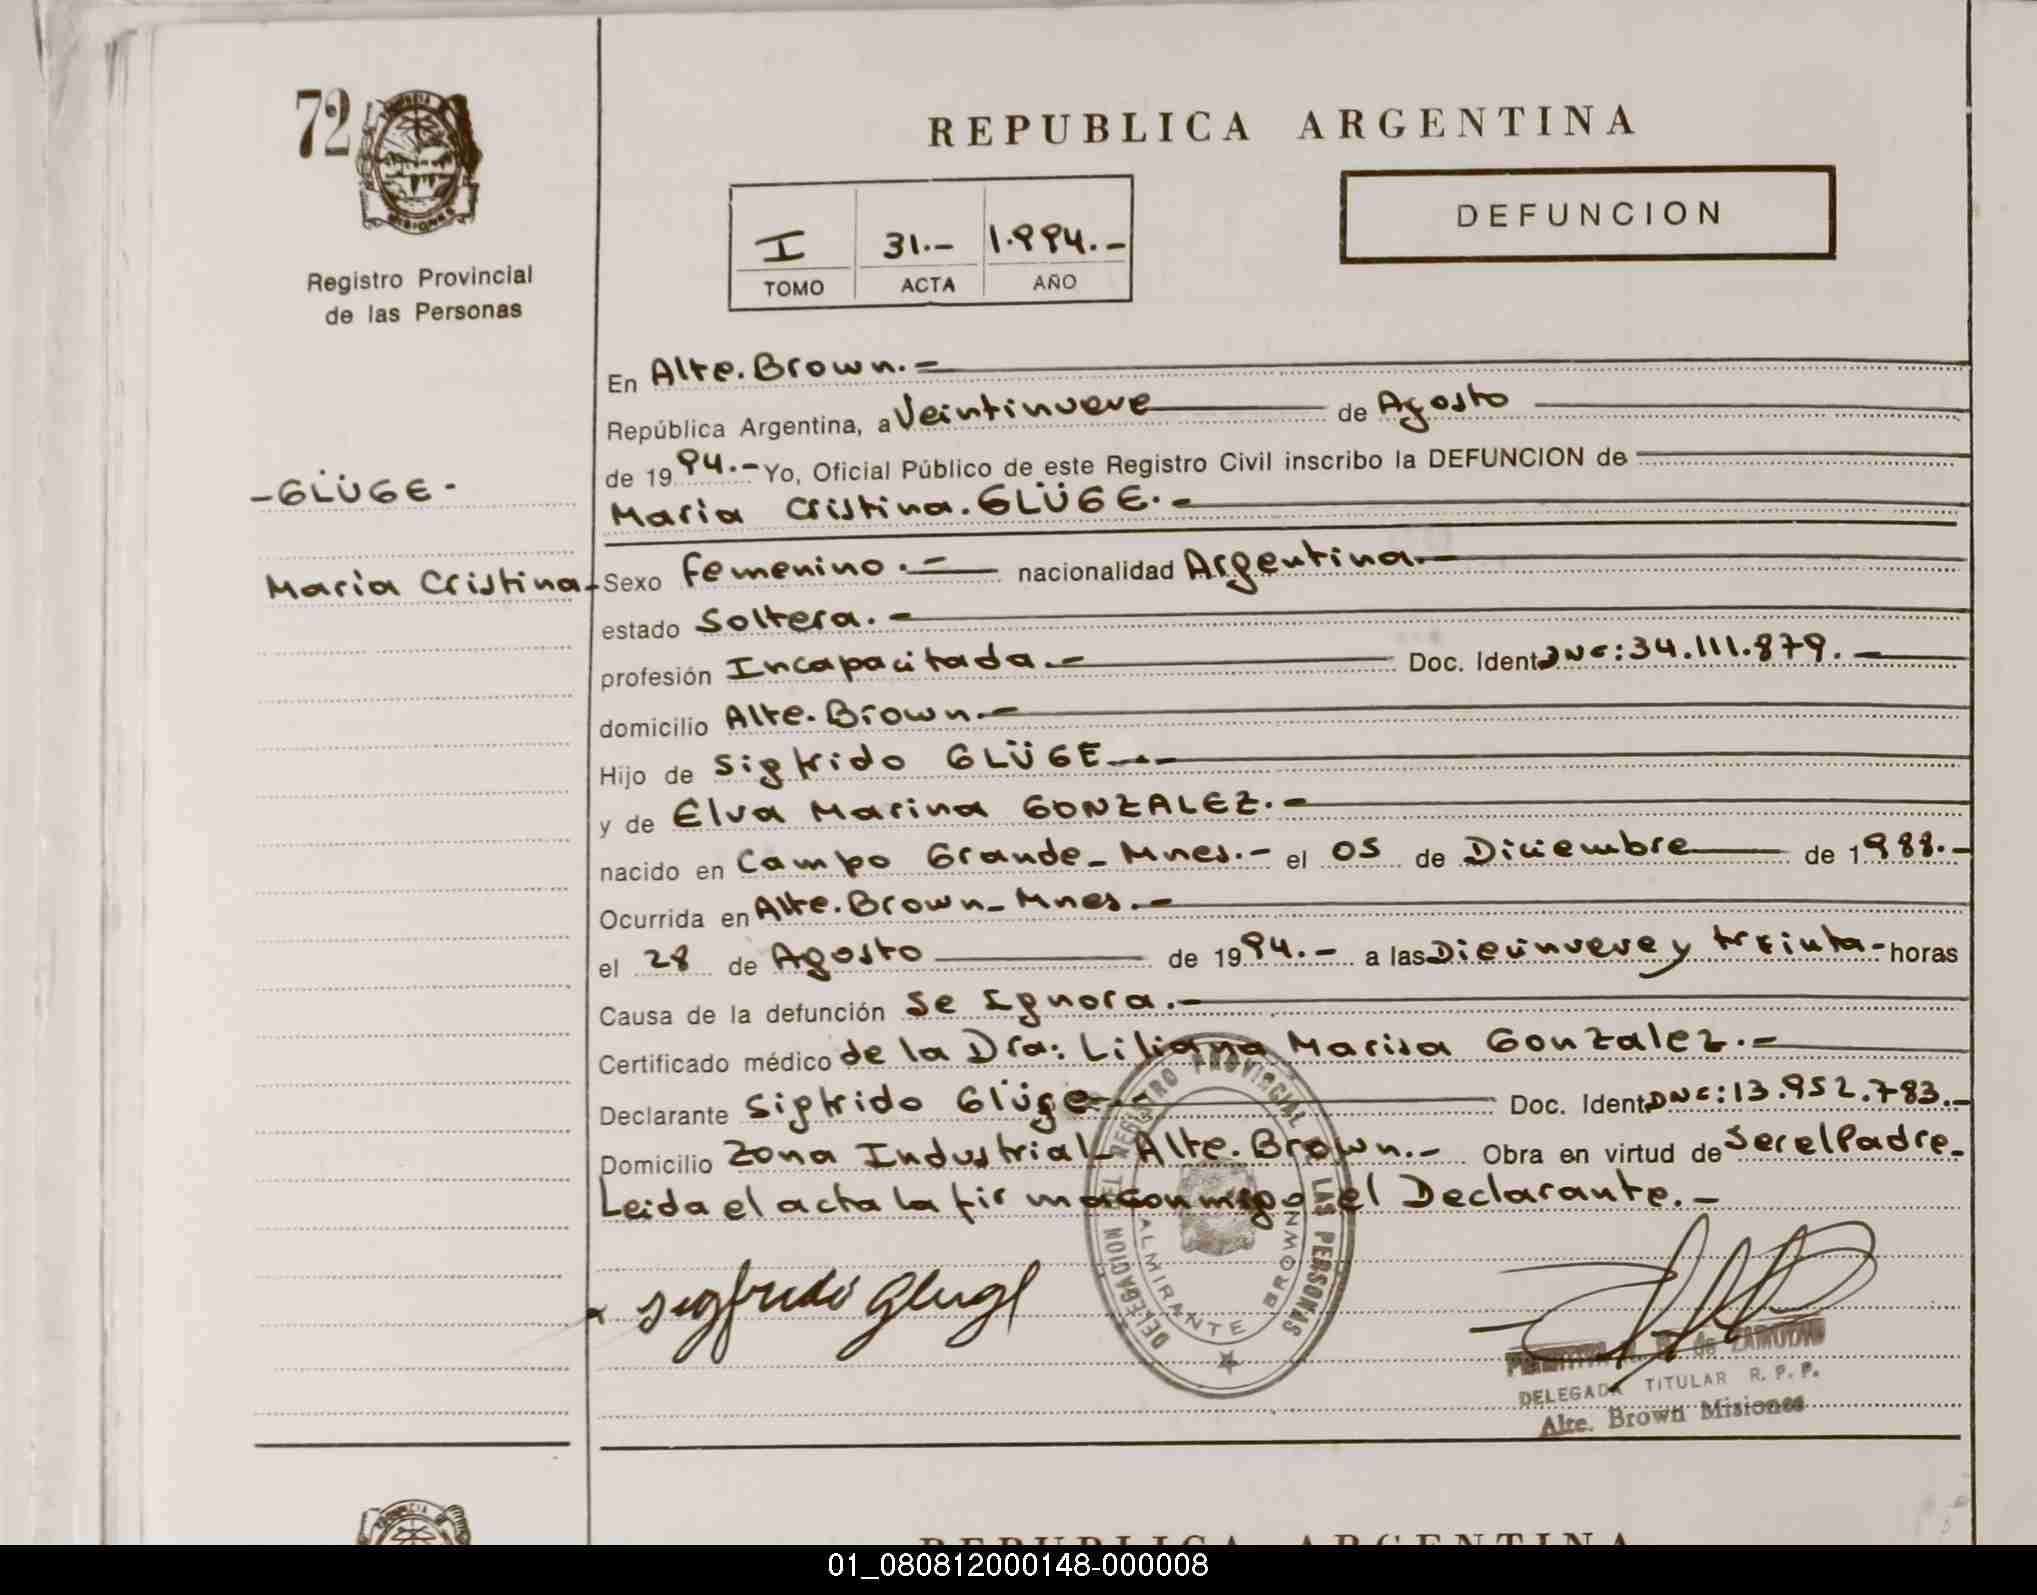 72
PROVINCIA DE
MISIONES
Registro Provincial
de las Personas
REPUBLICA ARGENTINA
I 31.- 1.994.-
TOMO ACTA AÑO
DEFUNCION
-GLÜGE-
Maria Cristina-
En Alte. Brown.-
República Argentina, a Veintinueve de Agosto
de 1994.- Yo, Oficial Público de este Registro Civil inscribo la DEFUNCION de
Maria Cristina. GLÜGE.-
Sexo femenino.- nacionalidad Argentina.-
estado Soltera.-
profesión Incapacitada.- Doc. Ident. DNI: 34.111.879.-
domicilio Alte. Brown.-
Hijo de Sigfrido GLÜGE.-
y de Elva Marina GONZALEZ.-
nacido en Campo Grande-Mnes.- el 05 de Diciembre de 1988.-
Ocurrida en Alte. Brown-Mnes.-
el 28 de Agosto de 1994.- a las Diecinueve y treinta- horas
Causa de la defunción Se Ignora.-
Certificado médico de la Dra: Liliana Marisa Gonzalez.-
Declarante Sigfrido Glüge- Doc. Ident. DNI: 13.952.783.-
Domicilio Zona Industrial-Alte. Brown.- Obra en virtud de Ser el Padre.-
Leida el acta la firma conmigo el Declarante.-
Sigfrido Gluge
DELEGACION DEL REGISTRO PROVINCIAL LAS PERSONAS
ALMIRANTE BROWN
de ZAMUDIO
DELEGADA TITULAR R. P. P.
Alte. Brown Misiones
REPUBLICA ARGENTINA
01_080812000148-000008